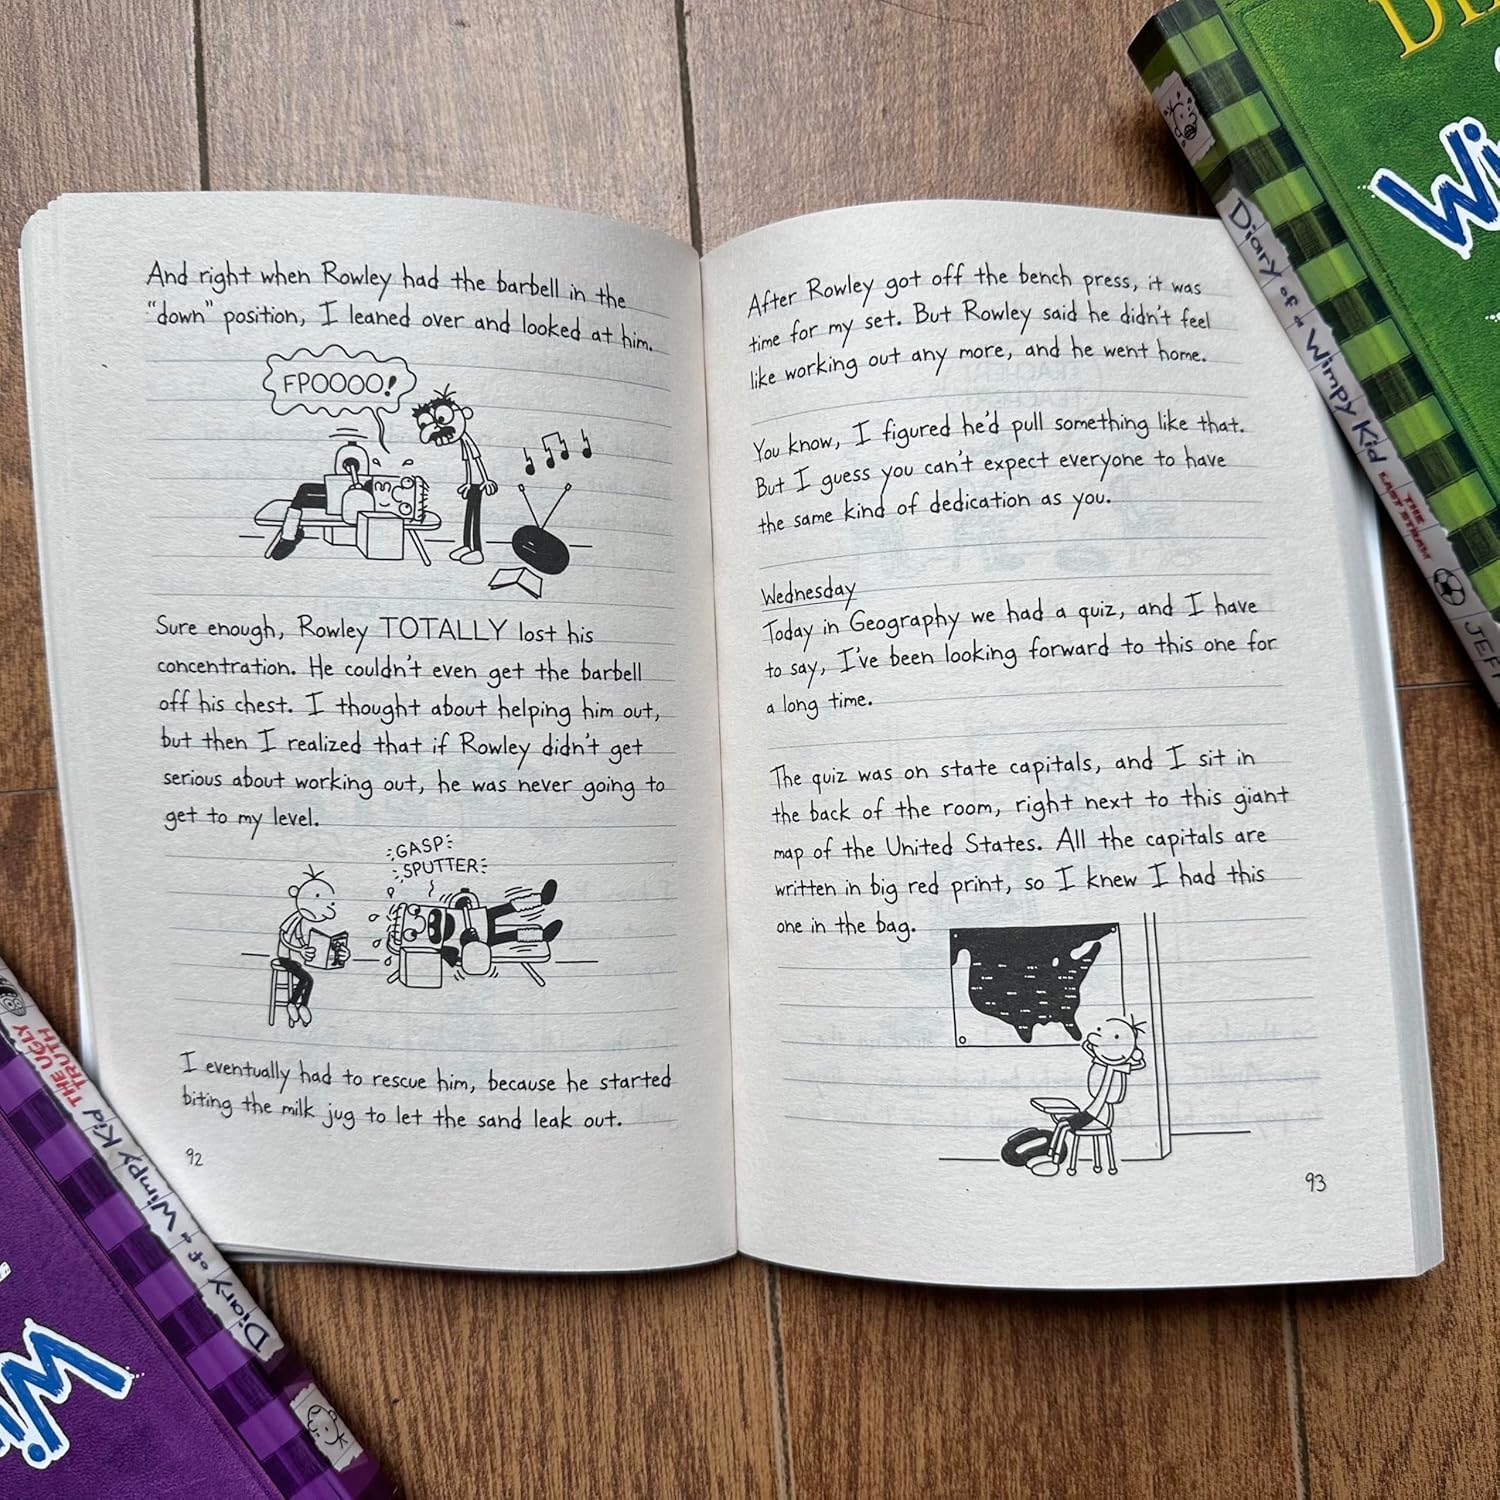 And right when Rowley had the barbell in the
"down" position, I leaned over and looked at him.
FPOOOO!
Sure enough, Rowley TOTALLY lost his
concentration. He couldn't even get the barbell
off his chest. I thought about helping him out,
but then I realized that if Rowley didn't get
serious about working out, he was never going to
get to my level.
GASP
SPUTTER
I eventually had to rescue him, because he started
biting the milk jug to let the sand leak out.
92
After Rowley got off the bench press, it was
time for my set. But Rowley said he didn't feel
like working out any more, and he went home.
You know, I figured he'd pull something like that.
But I guess you can't expect everyone to have
the same kind of dedication as you.
Wednesday
Today in Geography we had a quiz, and I have
to say, I've been looking forward to this one for
a long time.
The quiz was on state capitals, and I sit in
the back of the room, right next to this giant
map of the United States. All the capitals are
written in big red print, so I knew I had this
one in the bag.
93
Diary of a Wimpy Kid THE LAST STRAW JEFF
Wi
Diary of a Wimpy Kid THE UGLY TRUTH
Wi